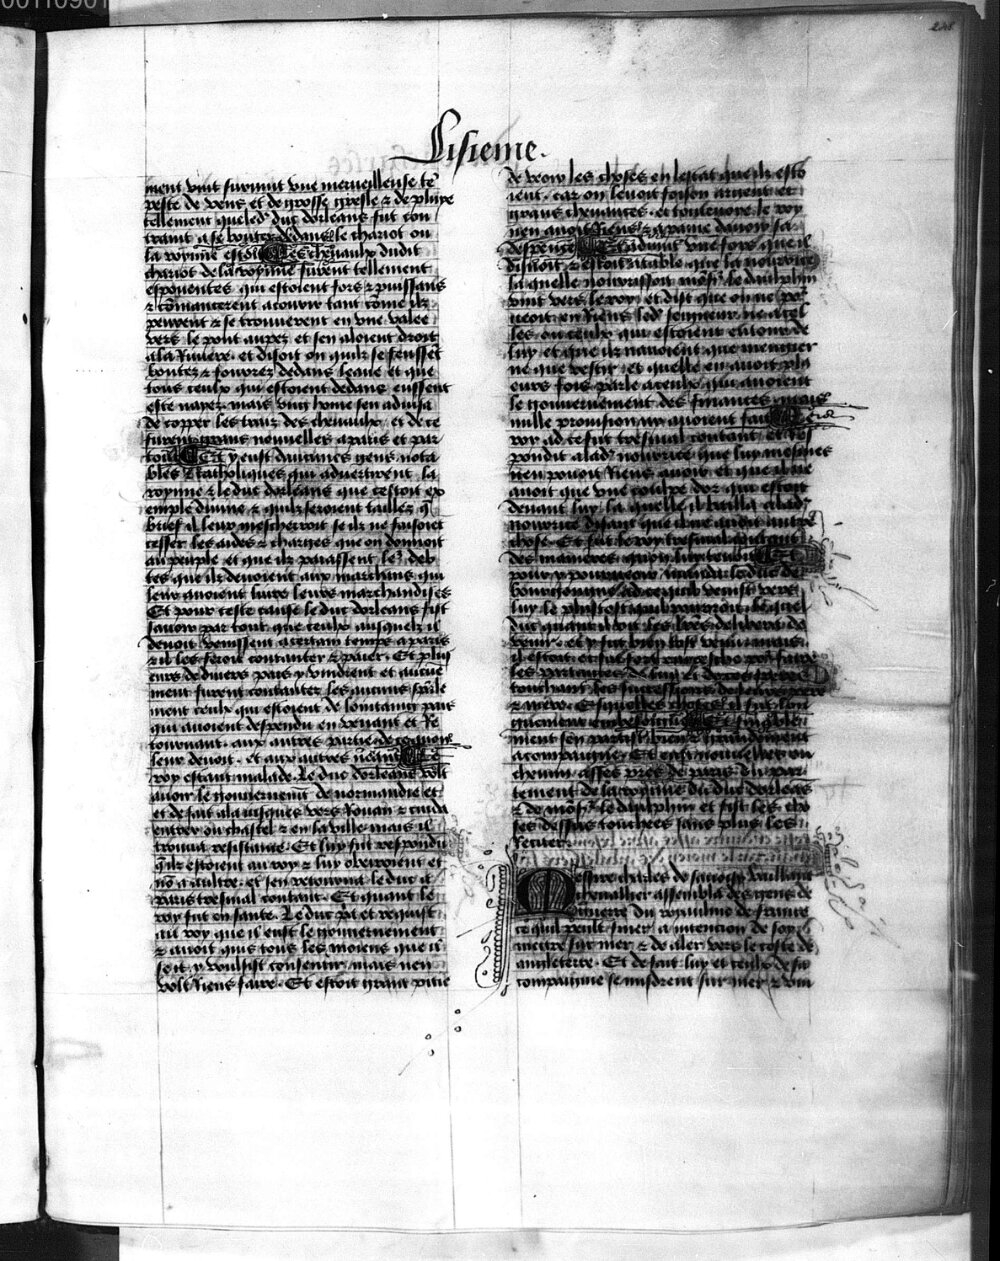 Lisieme.
ment vint survint vne merveilleuse te
peste de vens et de grosse gresle & de pluye
tellement queled' duc dorleans fut con
traint a se bouter dedans le chariot ou
la royne estoit Les chevaulx dudit
chariot de la royne furent tellement
espouentes qui estoient fors & puissans
& comancerent a courir tant come ilz
peurent & se trouverent en vne valee
vers le pont aupez et sen aloient droit
a la riuiere et disoit on quilz se feussét
boutez & fourrez dedans leaue et que
tous ceulx qui estoient dedans eussent
este nayez mais vng home sen aduisa
de copper les traiz des chevaulx et de ce
furent grans nouvelles a paris et par
tout Et y eust daucunes gens nota
bles & katholiques qui advertirent la
royne & le duc dorleans que cestoit ex
emple divine & quilz seroient taillez q'
brief il leur mescherroit se ilz ne faisoiét
cesser les aides & charges que on donnoit
au peuple et que ilz paiassent les deb
tes que ilz devoient aux marchans qui
leur avoient livre leurs marchandises
Et pour ceste cause le duc dorleans fist
savoir par tout que ceulx ausquelz il
devoit venissent a certain temps a paris
& il les feroit contanter & paier Et plus
eurs de divers pais y vindrent et aucune
ment furent contantez les aucuns spále
ment ceulx qui estoient de lointaing pais
qui avoient despendu en venant et re
tournant aux autres partie de ce quon
leur devoit et aux autres neant Le
roy estant malade le duc dorleans volt
avoir le gouvernement de normandie et
et de fait ala jusques vers Rouan & cuida
entrer ou chastel & en la ville mais il
trouva resistance Et luy fut respondu
q'ilz estoient au roy & luy obeiroient et
nõ a aultre et sen retourna le duc a
paris tresmal contant Et quant le
roy fut en sante Le duc vit et requist
au roy que il eust le gouvernement
& avoit quis tous les moiens que il
soit y voulsist consentir mais rien
volt riens faire Et estoit grant pitie
de veoir les choses en lestat que ilz esto
ient car on levoit foison argent et
grans chevances et toutevoie le roy
nen avoit riens & a paine avoit sa
despence Et advint vne fois que il
disnoit & estoit a table que la nourrice
la quelle nourrissoit mõsr le daulphin
vint vers le roy et dist que on ne por
veoit en riens led' seigneur ne a cel
les ou ceulx qui estoient entour de
luy et que ilz navoient que menger
ne que vestir et quelle en avoit plu
eurs fois parle a ceulx qui avoient
le gouvernement des finances mais
nulle provision ny avoient fait Le
roy ad ce fut tresmal contant et res
pondit a lad' nourrice que luy mesmes
nen pouoit riens avoir et que il ne
avoit que vne couppe dor qui estoit
devant luy la quelle il bailla a lad'
nourrice disant que il ne avoit autre
chose Et fut le roy tresmal contant
des manieres quon luy tenoit Et
pour y pourveoir manda le duc de
bourgongne ad ce quil venist vers
luy le plus tost quil pourroit Le quel
duc quant il oit les lres delibera de
venir et y fut bien tost venu mais
touchant les successions de ses pere
& mere
ment sen partist bien & grandement
acompaigne Et eust nouvelles ou
chemin asses pres de paris du par
tement de la royne du duc dorleans
& de mõsr le daulphin et fist les cho
ses dessus touchees sans plus les
reciter
Messire charles de savoisy vaillant
chevallier assembla des gens de
guerre du royaulme de france
ce quil peult finer a intencion de soy
mettre sur mer & de aler vers la coste de
angleterre Et de fait luy et ceulx de sa
compaigne se misdrent sur mer & vin